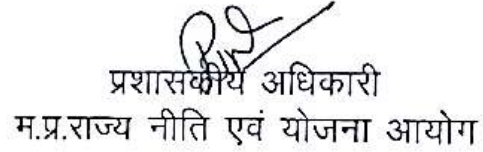 प्रशासकीय अधिकारी
म.प्र.राज्य नीति एवं योजना आयोग